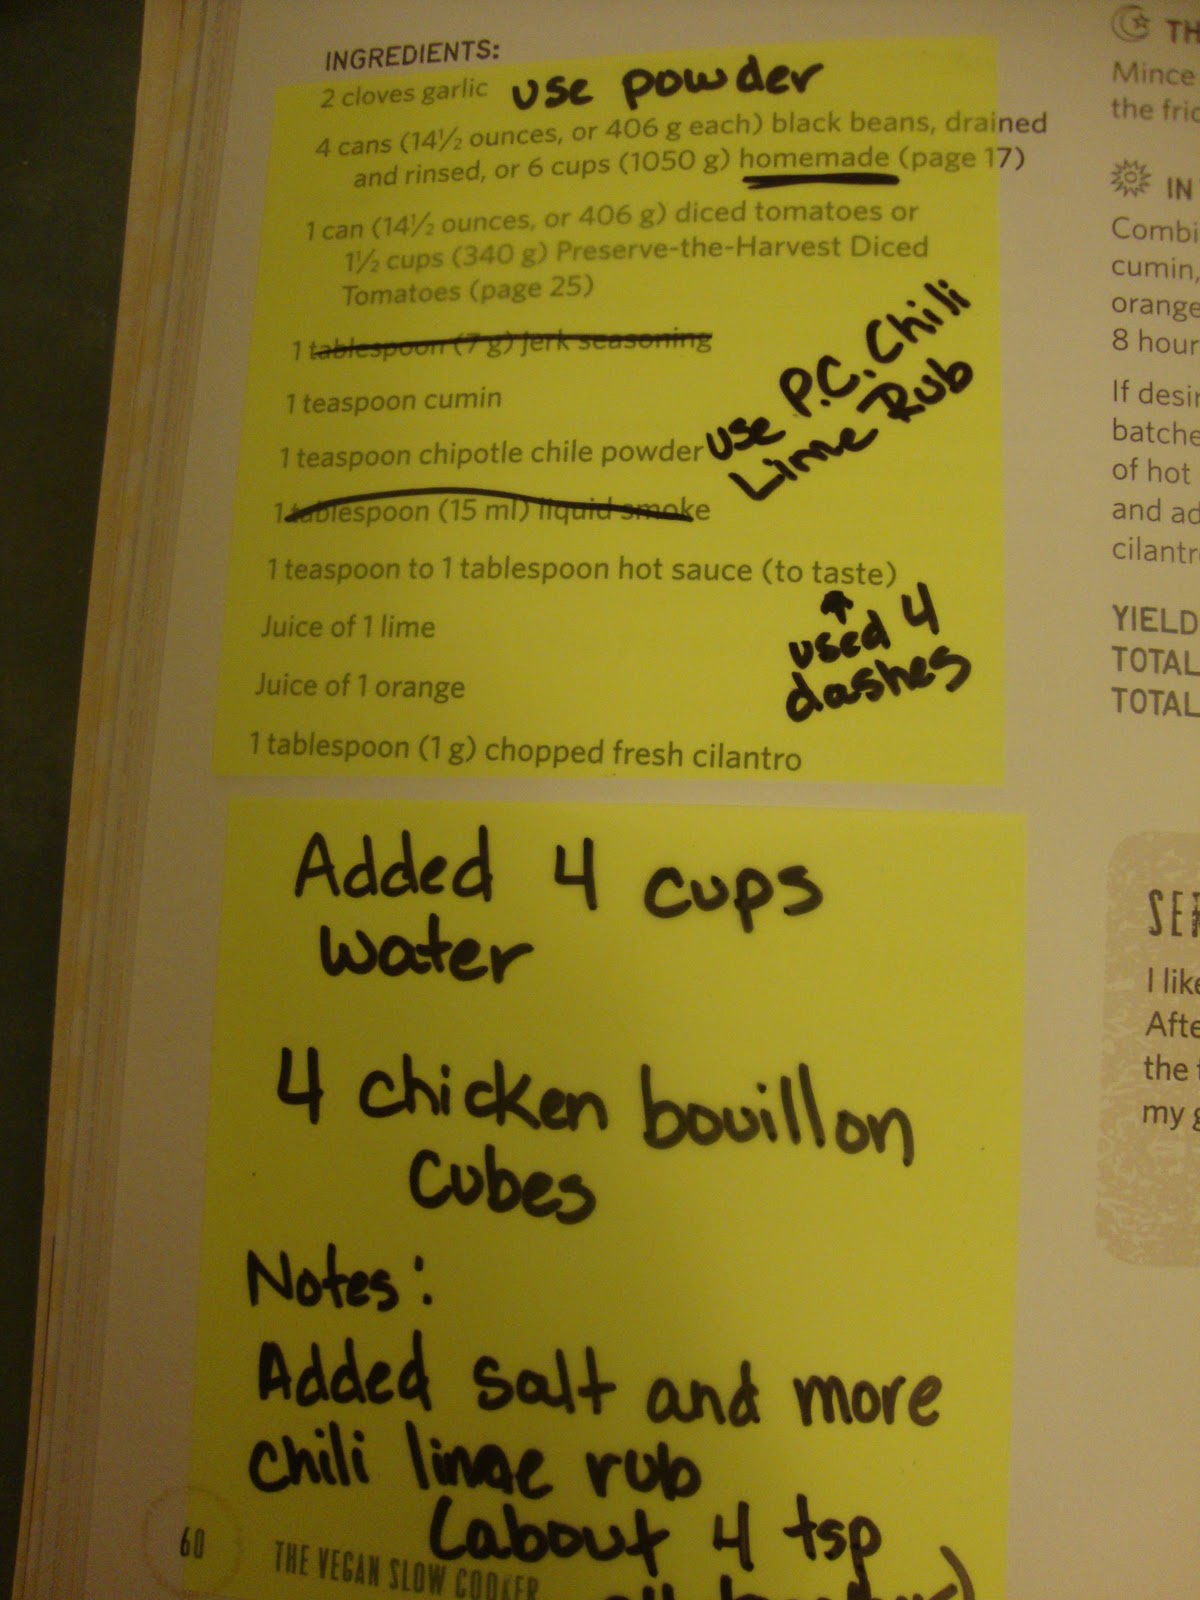 INGREDIENTS:
2 cloves garlic use powder
4 cans (14½ ounces, or 406 g each) black beans, drained
and rinsed, or 6 cups (1050 g) homemade (page 17)
1 can (14½ ounces, or 406 g) diced tomatoes or
1½ cups (340 g) Preserve-the-Harvest Diced
Tomatoes (page 25)
1 tablespoon (7 g) jerk seasoning
1 teaspoon cumin
1 teaspoon chipotle chile powder
use P.C. Chili
Lime Rub
1 tablespoon (15 ml) liquid smoke
1 teaspoon to 1 tablespoon hot sauce (to taste)
used 4
dashes
Juice of 1 lime
Juice of 1 orange
1 tablespoon (1 g) chopped fresh cilantro
Added 4 cups
water
4 chicken bouillon
cubes
Notes:
Added salt and more
chili lime rub
(about 4 tsp
60
THE VEGAN SLOW COOKER
TH
Mince
the fric
IN
Combi
cumin,
orange
8 hour
If desir
batche
of hot
and ad
cilantr
YIELD
TOTAL
TOTAL
SER
I like
Afte
the
my g